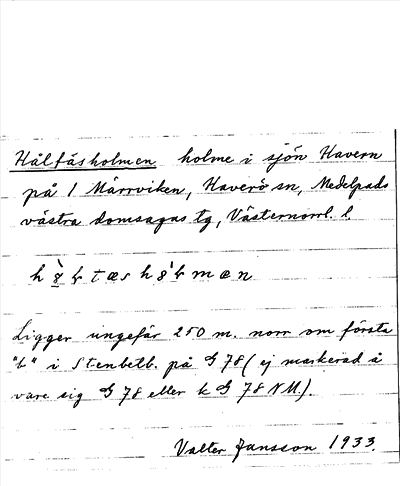 Hålfäsholmen holme i sjön Havern
på 1 Märrviken, Haverö sn, Medelpads
västra domsagas tg, Västernorrl. l.
Ligger ungefär 250 m. norr om första
"b" i Stenbetb. på G 78 (ej markerad å
vare sig G 78 eller k G 78 NM).
Valter Jansson 1933.